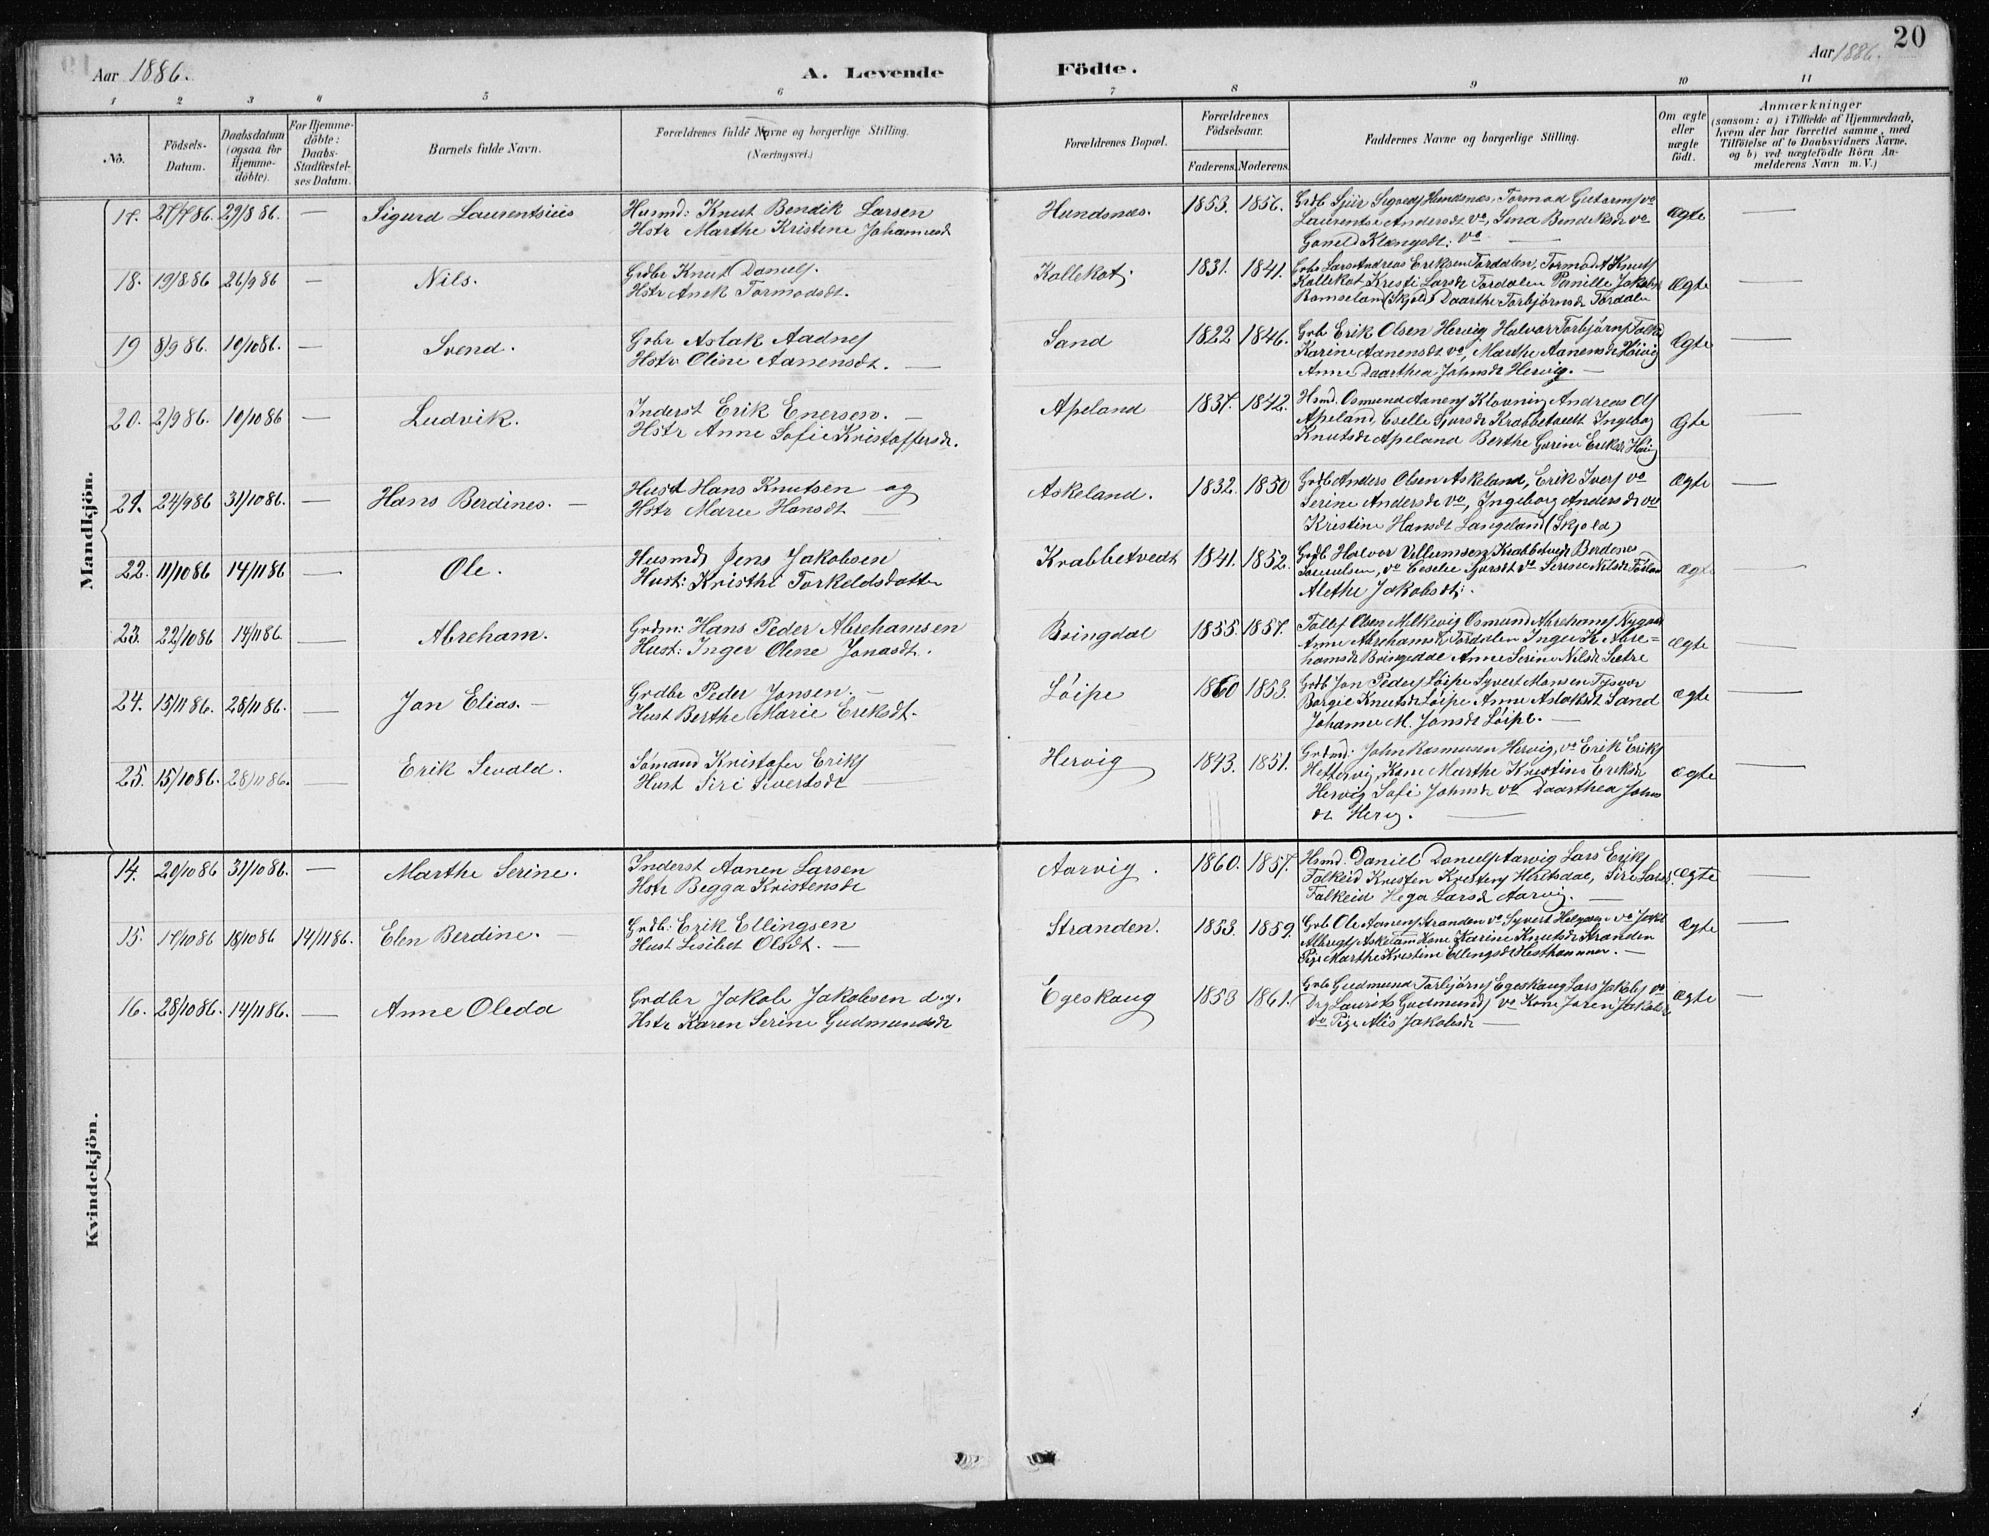 20
Aar 1886.
A. Levende
Födte.
Aar 1886.
1 2 3 4 5 6 7 8 9 10 11
No.
Födsels-
Datum.
Daabsdatum
(ogsaa for
Hjemme-
döbte).
For Hjemme-
döbte:
Daabs-
Stadfæstel-
ses Datum.
Barnets fulde Navn.
Forældrenes fulde Navne og borgerlige Stilling.
(Næringsvei.)
Forældrenes Bopæl.
Forældrenes
Födselsaar.
Faderens. Moderens.
Faddernes Navne og borgerlige Stilling.
Om ægte
eller
uægte
födt.
Anmærkninger
(saasom: a) i Tilfælde af Hjemmedaab,
hvem der har forrettet samme, med
Tilföielse af to Daabsvidners Navne,
og b) ved uægtefödte Börn An-
melderens Navn m. V.)
Mandkjön.
17. 27/7 86. 29/8 86. — Sigurd Laurentsius
Husmd: Knut Bendik Larsen
Hstr Marthe Kristine
Hundsnæs. 1853. 1856.
Laurentse Andersdt vo, Sina Bendiksdt vo
Goneld Klængsdt: vo
Ægte —
18. 19/8 86 26/9 86 — Nils.
Grdbr Knut Daniels.
Hstr Anek Tormodsdt.
Kallekot. 1831. 1841.
Grb Lars Andreas Eriksen Fordalen, Tormod A Knuts
Kallekot, Kristi Larsdt Fordalen Pernille Jakobs
Romseland (Skjold) Daarthe Torbjörnsdt Fordalen
Ægte —
19 8/9 86. 10/10 86. — Svend.
Grbr Aslak Aadnes
Hstr Oline Aanensdt. —
Sand 1822 1846.
Grb Erik Olsen Hervig Halvor Torbjörns
Karine Aanensdt vo, Marthe Aanensdt Höivig
Anne Daarthea Johnsdt Hervig. —
Ægte —
20. 2/9 86. 10/10 86 — Ludvik.
Inderst Erik Enersen. —
Hstr Anne Sofie Kristoffersdt.
Apeland 1837. 1842.
Hsmd. Osmund Aanens Klovning Andreas Ols
Apeland, Eselle Sjursdt Krabbetvedt Ingeborg
Knutsdt Apeland Berthe Gurine Eriksdt
Ægte —
21. 24/9 86 31/10 86. — Hans Berdines. —
Hust Hans Knutsen og
Hstr Marie Hansdt —
Askeland. 1832. 1850
Grdb Anders Olsen Askeland, Erik Ivers vo
Serine Andersdt vo, Ingeborg Andersdt vo
Kristine Hansdt Langeland (Skjold)
Ægte —
22. 11/10 86 14/11 86 — Ole.
Husmd Jens Jakobsen
Hust: Kristhi Torkeldsdatter
Krabbetvedt 1841. 1852.
Grdb Halvor Villumsen Krabbetvedt Berdenes
vo Ceselie Sjursdt vo Serine Nilsdt
Alethe Jakobsdt.
ægte —
23. 22/10 86 14/11 86. — Abreham.
Grdm: Hans Peder Abrehamsen
Hust: Inger Olene Jonasdt.
Bringdal 1855. 1857.
Tolles Olsen Milkevig Osmund Abrehams Nygaar
Anne Abrehamsdt Fordalen Inger K Abre=
hamsdt Bringedal Anne Serine Nilsdt Sætre
ægte —
24. 15/11 86. 28/11 86. — Jan Elias. —
Grdbr Peder Jansen. —
Hust Berthe Marie Eriksdt.
Löipe 1860 1853.
Grdb Jan Peders Löipe Syvert Monsen Tysvær
Borgie Knutsdt Löipe Anne Aslaksdt Sand
Johanne M. Jonsdt Löipe. —
ægte —
25. 15/10 86. 28/11 86. — Erik Sevald.
Sömand Kristofer Eriks
Hust Siri Sivertsdt —
Hervig 1843. 1851.
Grdmd: John Rasmusen Hervig, vo Erik Eriks
Hettervig, Kone Marthe Kristine Eriksdt
Hervig Sofi Johnsdt vo Daarthea Johns
dt Hervig. —
ægte —
Kvindekjön.
14. 20/10 86 31/10 86. — Marthe Serine.
Inderst Aanen Larsen
Hstr Begga Kristensdt
Aarvig. 1860. 1857.
Hsmd. Daniel Daniels Aarvig Lars Eriks
Falkeid Kristen Kristens Siri Larsdt
Falkeid Hega Larsdt Aarvig. —
ægte —
15. 17/10 86 18/10 86 14/11 86. Elen Berdine. —
Grdb: Erik Ellingsen
Hust Lisibet Olsdt. —
Stranden. 1853. 1859.
Grb Ole Aanens Stranden vo, Syvert Helgesen vo
Albregts Askeland Kone Karine Knutsdt Stranden
Pige Marthe Kristine Ellingsdt Hesthammer. —
Ægte —
16. 28/10 86. 14/11 86. — Anne Oleda
Grdbr Jakob Jakobsen d.y.
Hstr Karen Serine Gudmundsdt
Egeskaug 1853 1861.
Grb Gudmund Torbjörns Egeskaug Lars Jakobs vo
Drg Laurits Gudmunds vo Kone Joren Jakobsdt
vo Pige Alis Jakobsdt —
Ægte —